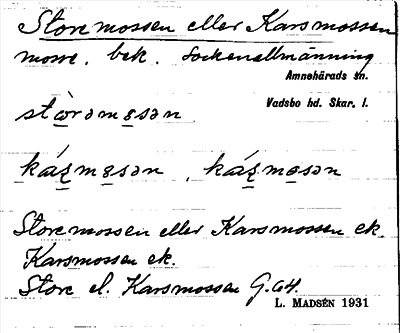 Storemossen eller Karsmossen
mosse, bek. Sockenallmänning
Amnehärads sn.
Vadsbo hd. Skar. l.
stòrəmosən
kásmosən, kásmosən
Storemossen eller Karsmossen ek.
Karsmossen ek.
Store el. Karsmossen G.64.
L. MADSÉN 1931